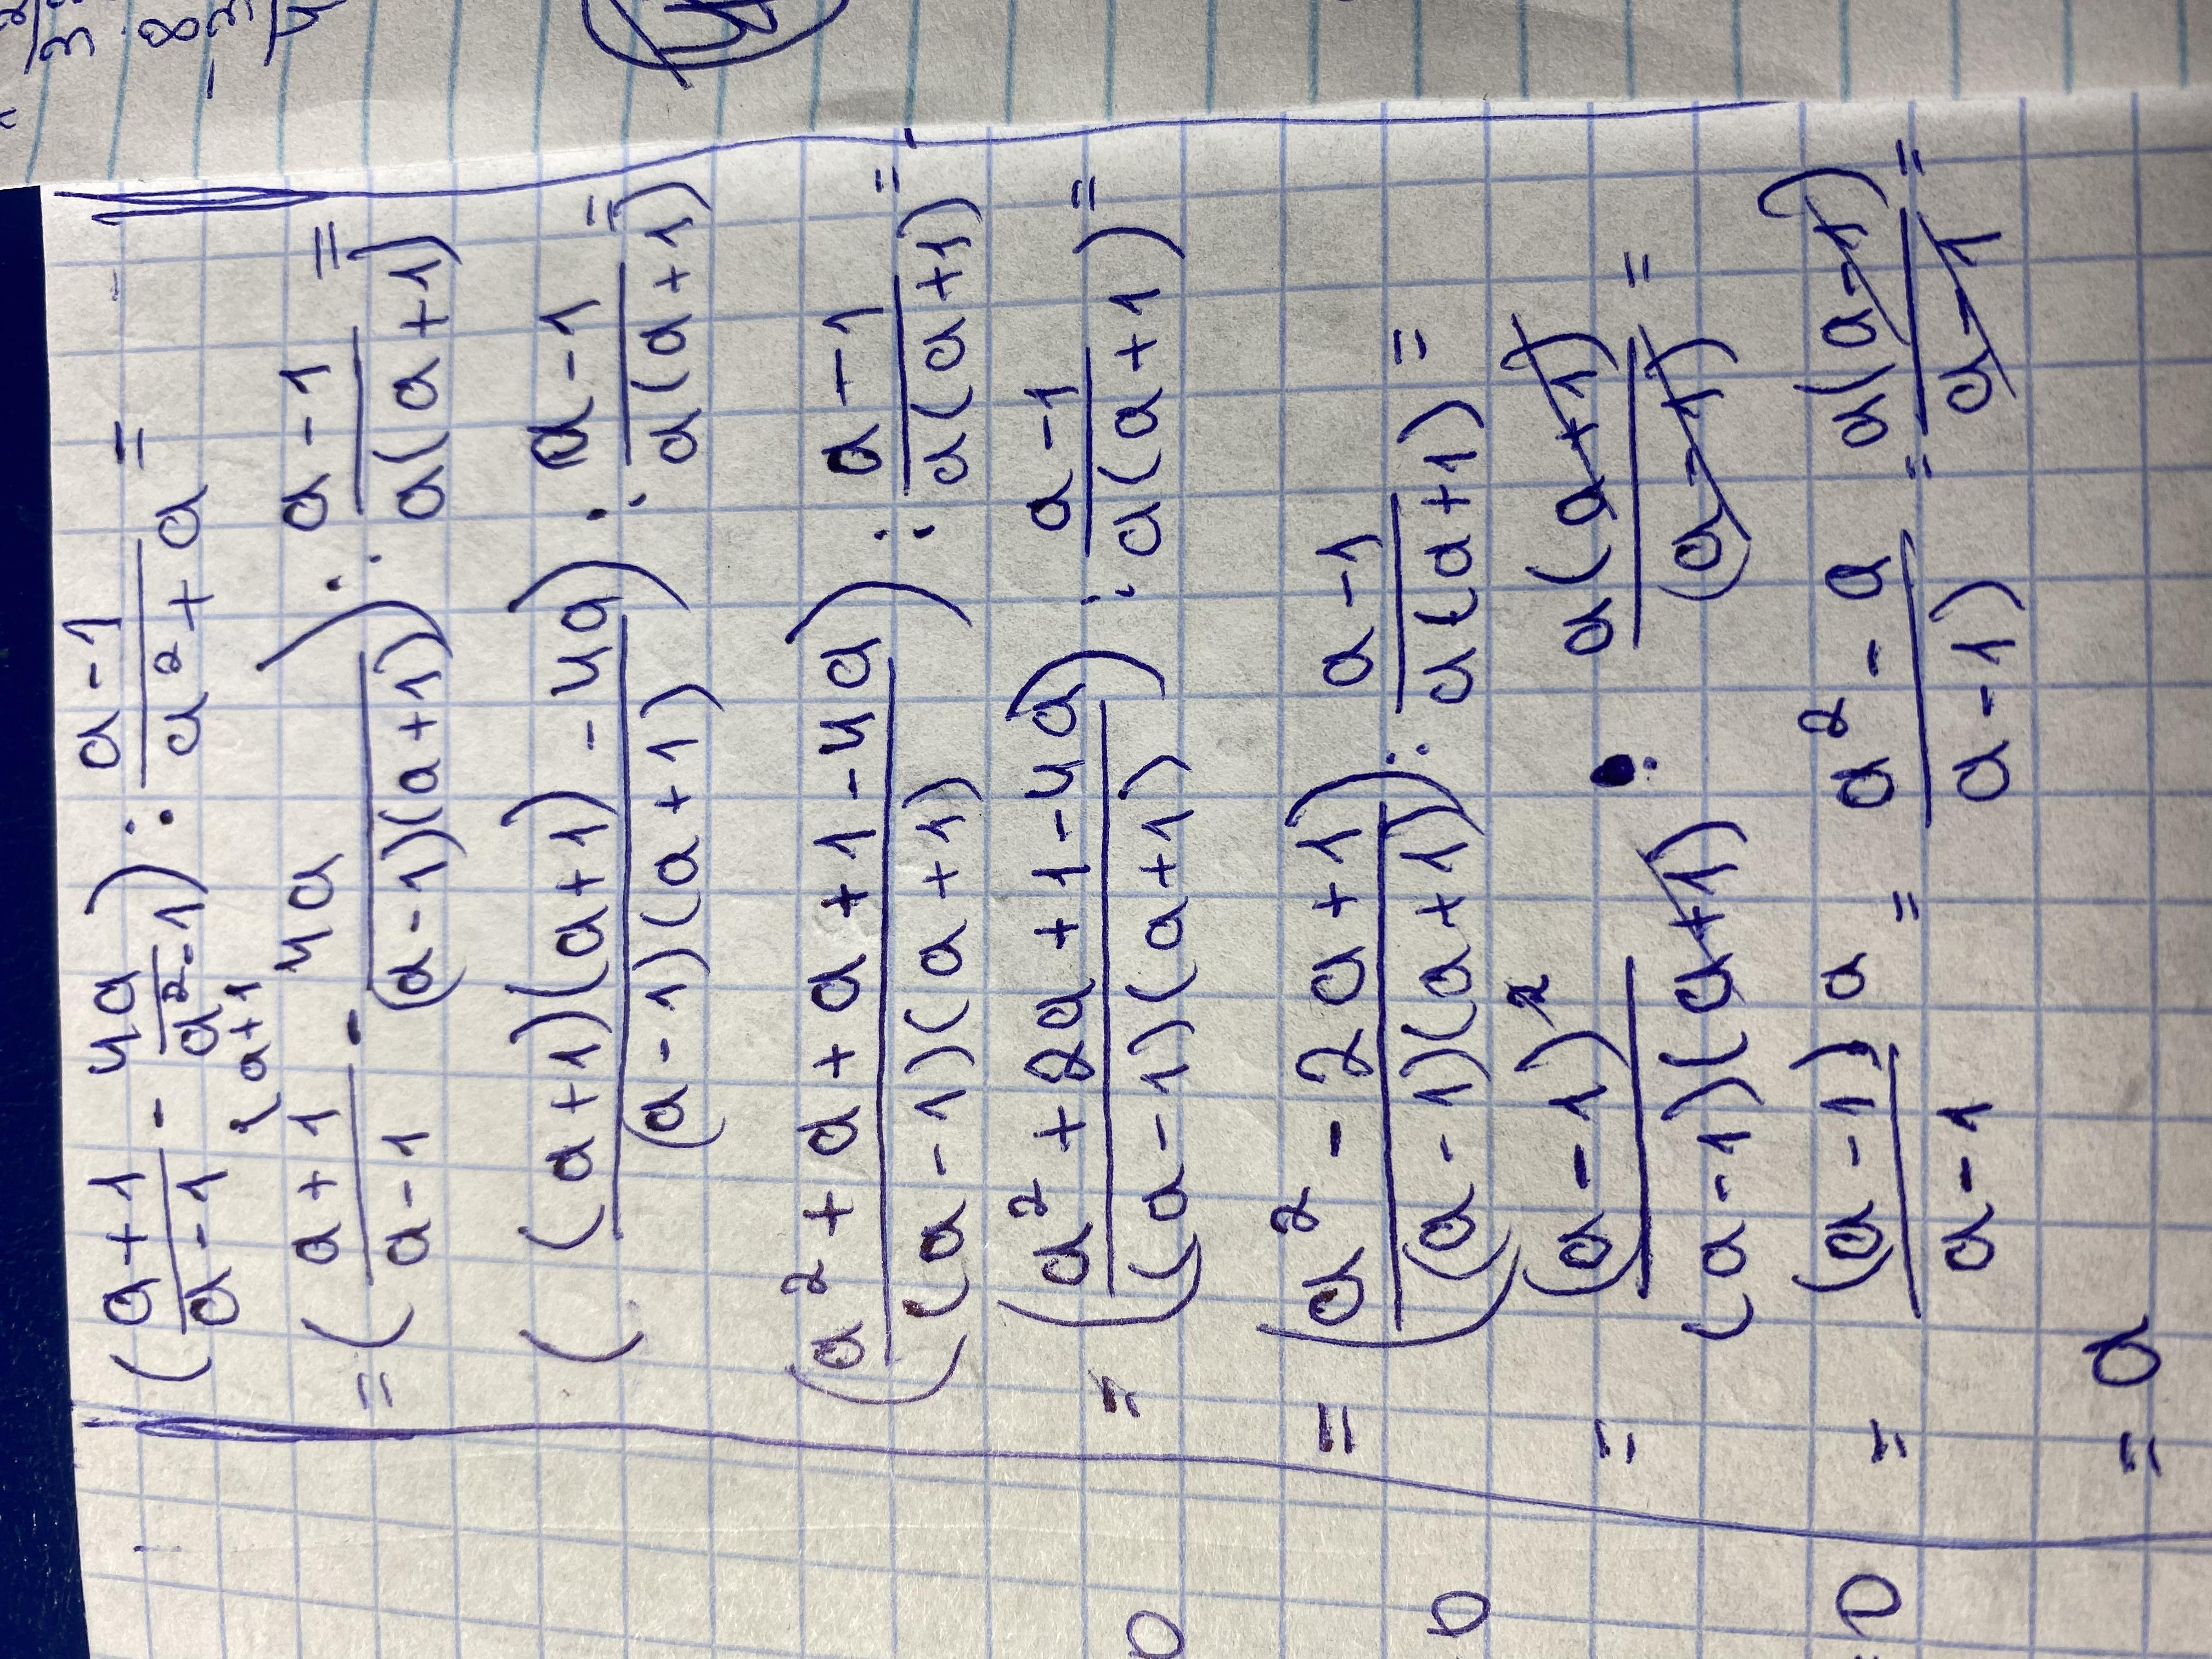 (a+1/a-1 - 4a/a²-1) : a-1/a²+a =
{a+1
= (a+1/a-1 · 4a/(a-1)(a+1)) : a-1/a(a+1) =
((a+1)(a+1)-4a/(a-1)(a+1)) : a-1/a(a+1) =
(a²+a+a+1-4a/(a-1)(a+1)) : a-1/a(a+1) =
= (a²+2a+1-4a/(a-1)(a+1)) : a-1/a(a+1) =
= (a²-2a+1/(a-1)(a+1)) : a-1/a(a+1) =
= (a-1)²/(a-1)(a+1) · a(a+1)/(a-1) =
= (a-1)a/a-1 = a²-a/a-1) = a(a-1)/a-1 =
= a